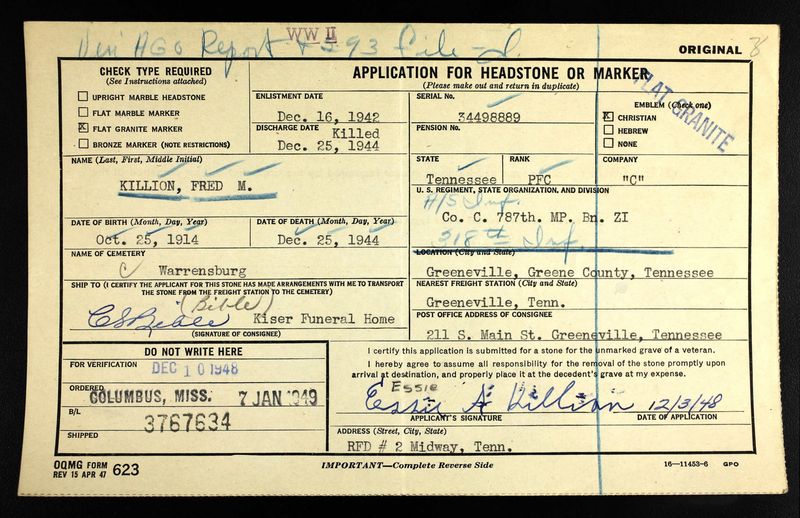 WW II
Veri AGO Report + 293 file
ORIGINAL
CHECK TYPE REQUIRED
(See Instructions attached)
UPRIGHT MARBLE HEADSTONE
FLAT MARBLE MARKER
X FLAT GRANITE MARKER
BRONZE MARKER (NOTE RESTRICTIONS)
APPLICATION FOR HEADSTONE OR MARKER
(Please make out and return in duplicate)
ENLISTMENT DATE
Dec. 16, 1942
DISCHARGE DATE Killed
Dec. 25, 1944
SERIAL No.
34498889
PENSION No.
EMBLEM (Check one)
X CHRISTIAN
HEBREW
NONE
FLAT GRANITE
NAME (Last, First, Middle Initial)
KILLION, FRED M.
STATE
Tennessee
RANK
PFC
COMPANY
"C"
U. S. REGIMENT, STATE ORGANIZATION, AND DIVISION
Co. C. 787th. MP. Bn. ZI
318th Inf.
DATE OF BIRTH (Month, Day, Year)
Oct. 25, 1914
DATE OF DEATH (Month, Day, Year)
Dec. 25, 1944
NAME OF CEMETERY
Warrensburg
LOCATION (City and State)
Greeneville, Greene County, Tennessee
SHIP TO (I CERTIFY THE APPLICANT FOR THIS STONE HAS MADE ARRANGEMENTS WITH ME TO TRANSPORT
THE STONE FROM THE FREIGHT STATION TO THE CEMETERY)
(Bible)
C S Bible Kiser Funeral Home
(SIGNATURE OF CONSIGNEE)
NEAREST FREIGHT STATION (City and State)
Greeneville, Tenn.
POST OFFICE ADDRESS OF CONSIGNEE
211 S. Main St. Greeneville, Tennessee
DO NOT WRITE HERE
FOR VERIFICATION
DEC 10 1948
ORDERED
COLUMBUS, MISS. 7 JAN 1949
B/L
3767634
SHIPPED
I certify this application is submitted for a stone for the unmarked grave of a veteran.
I hereby agree to assume all responsibility for the removal of the stone promptly upon
arrival at destination, and properly place it at the decedent's grave at my expense.
ESSIE
Essie A Killion 12/3/48
APPLICANT'S SIGNATURE
DATE OF APPLICATION
ADDRESS (Street, City, State)
RFD # 2 Midway, Tenn.
OQMG FORM
REV 15 APR 47 623
IMPORTANT—Complete Reverse Side
16—11453-6 GPO